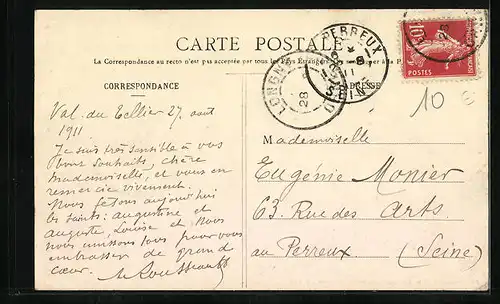 CARTE POSTALE
La Correspondance au recto n'est pas acceptée par tous les Pays Etrangers
CORRESPONDANCE
ADRESSE
PERREUX
LONGN
28
10
POSTES
10
Val du Tellier 27 août
1911
Je suis très sensible à vos
bons souhaits, chère
Mademoiselle, et vous en
remercie vivement.
Nous fêtons aujourd'hui
les saints: augustine et
auguste, Louise et Nous
nous unissons tous pour vous
embrasser de grand
cœur.
Mademoiselle
Eugénie Monier
63. Rue des Arts
au Perreux (Seine)